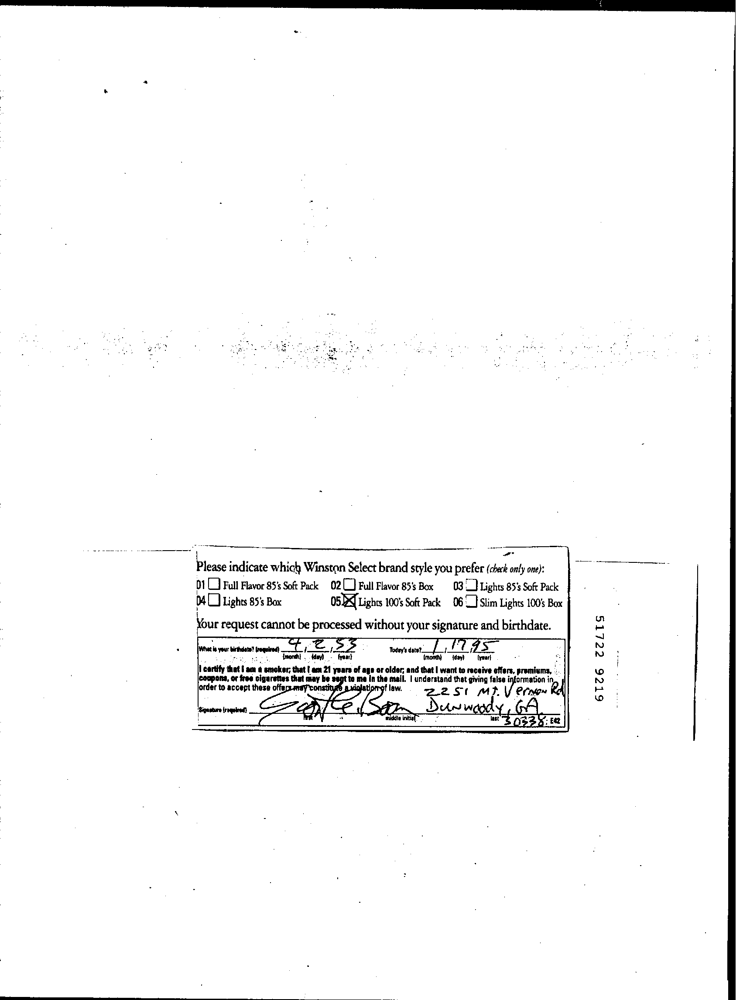 Please indicate which Winston Select brand style you prefer (check only one):
01 ☐ Full Flavor 85's Soft Pack 02 ☐ Full Flavor 85's Box 03 ☐ Lights 85's Soft Pack
04 ☐ Lights 85's Box 05 ☒ Lights 100's Soft Pack 06 ☐ Slim Lights 100's Box
Your request cannot be processed without your signature and birthdate.
What is your birthdate? (required) 4, 2, 53 Today's date? 1, 17, 95
(month) (day) (year) (month) (day) (year)
I certify that I am a smoker; that I am 21 years of age or older; and that I want to receive offers, premiums,
coupons, or free cigarettes that may be sent to me in the mail. I understand that giving false information in
order to accept these offers may constitute a violation of law.
2251 Mt. Vernon Rd
Dunwoody, GA
Signature (required)
first middle initial last 30338 E42
51722 9219